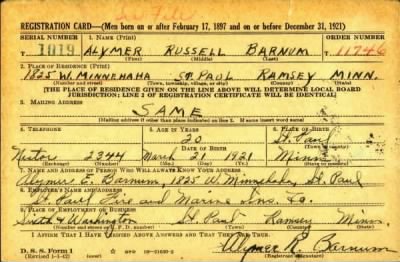 REGISTRATION CARD—(Men born on or after February 17, 1897 and on or before December 31, 1921)
SERIAL NUMBER 1. NAME (Print) ORDER NUMBER
1019 ALYMER RUSSELL BARNUM 11746
(First) (Middle) (Last)
2. PLACE OF RESIDENCE (Print)
1825 W. MINNEHAHA ST. PAUL RAMSEY MINN.
(Number and street) (Town, township, village, or city) (County) (State)
[THE PLACE OF RESIDENCE GIVEN ON THE LINE ABOVE WILL DETERMINE LOCAL BOARD
JURISDICTION; LINE 2 OF REGISTRATION CERTIFICATE WILL BE IDENTICAL]
3. MAILING ADDRESS
SAME
[Mailing address if other than place indicated on line 2. If same insert word same]
4. TELEPHONE 5. AGE IN YEARS 6. PLACE OF BIRTH
20 St. Paul
DATE OF BIRTH (Town or county)
Nestor 2344 March 21 1921 Minn
(Exchange) (Number) (Mo.) (Day) (Yr.) (State or country)
7. NAME AND ADDRESS OF PERSON WHO WILL ALWAYS KNOW YOUR ADDRESS
Alymer E. Barnum, 1825 W. Minnehaha, St. Paul
8. EMPLOYER'S NAME AND ADDRESS
St. Paul Fire and Marine Ins. Co.
9. PLACE OF EMPLOYMENT OR BUSINESS
& Washington St. Paul Ramsey Minn
(Number and street or R. F. D. number) (Town) (County) (State)
I AFFIRM THAT I HAVE VERIFIED ABOVE ANSWERS AND THAT THEY ARE TRUE.
D. S. S. Form 1
(Revised 1-1-42) (over)
Alymer R. Barnum
(Registrant's signature)